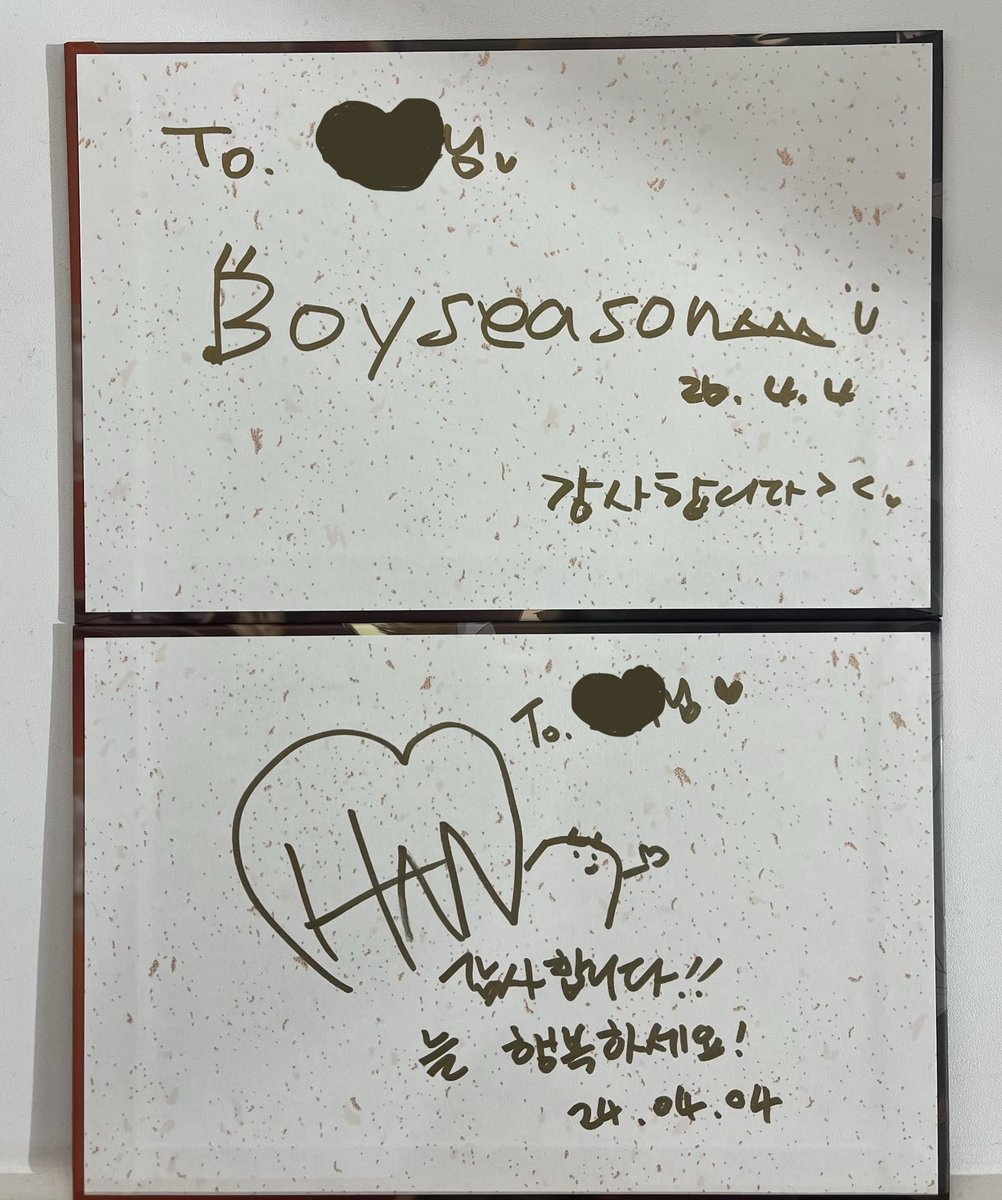 To. 님
Boyseason
26.4.4
감사합니다 > <
To. 님
HAN
감사합니다!!
늘 행복하세요!
24.04.04